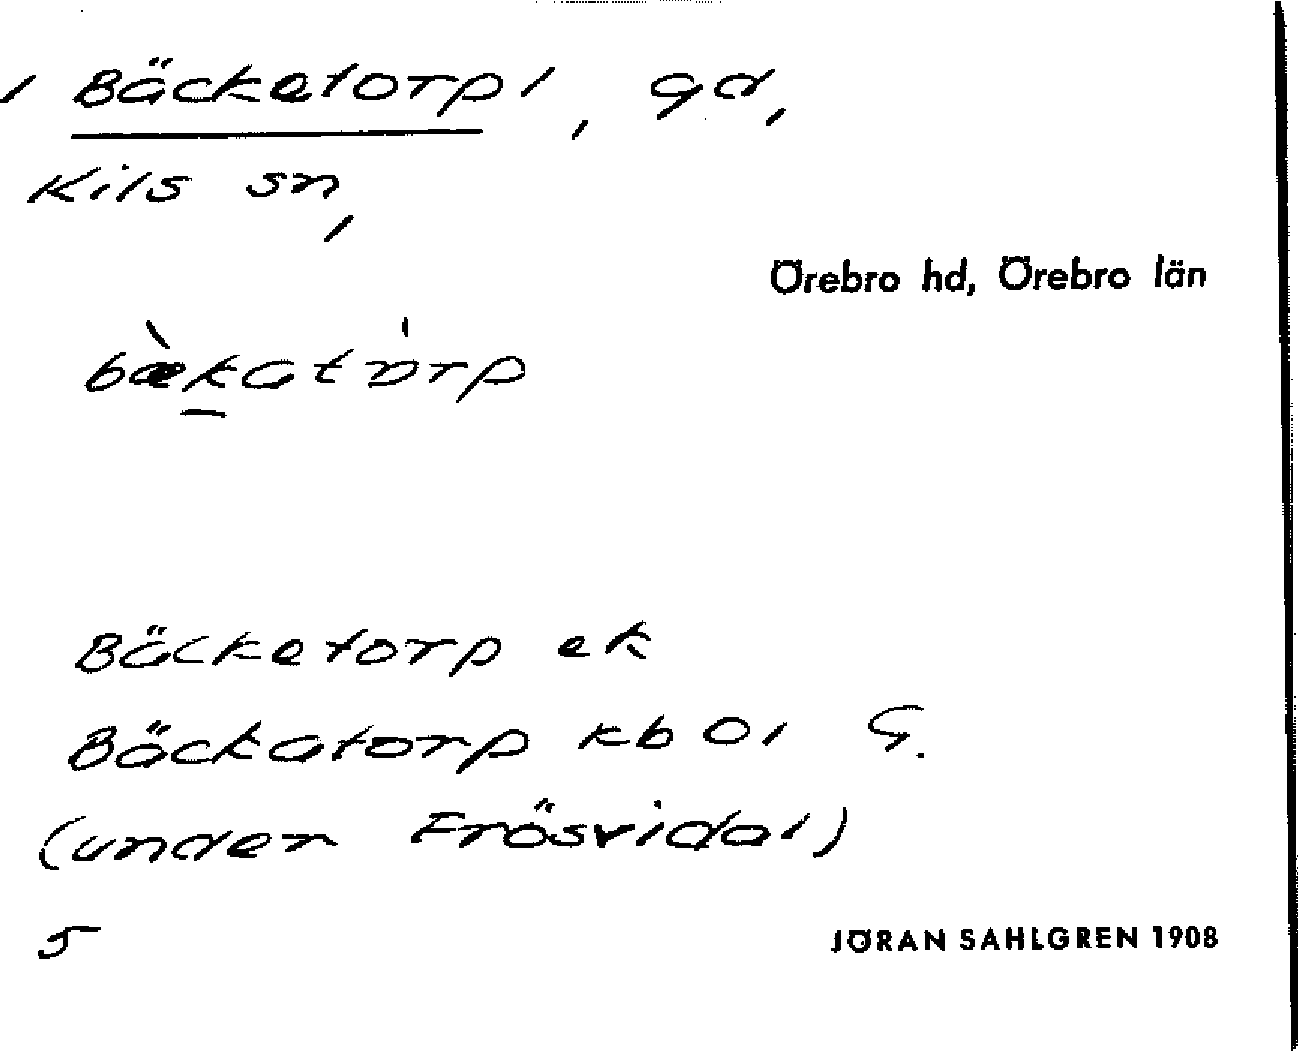 / Bäcketorp /, gd,
Kils sn,
Örebro hd, Örebro län
bæ̀katɒ̍rp
Bäcketorp ek
Bäckatorp kb 01 G.
(under Frösvidal)
5
JÖRAN SAHLGREN 1908